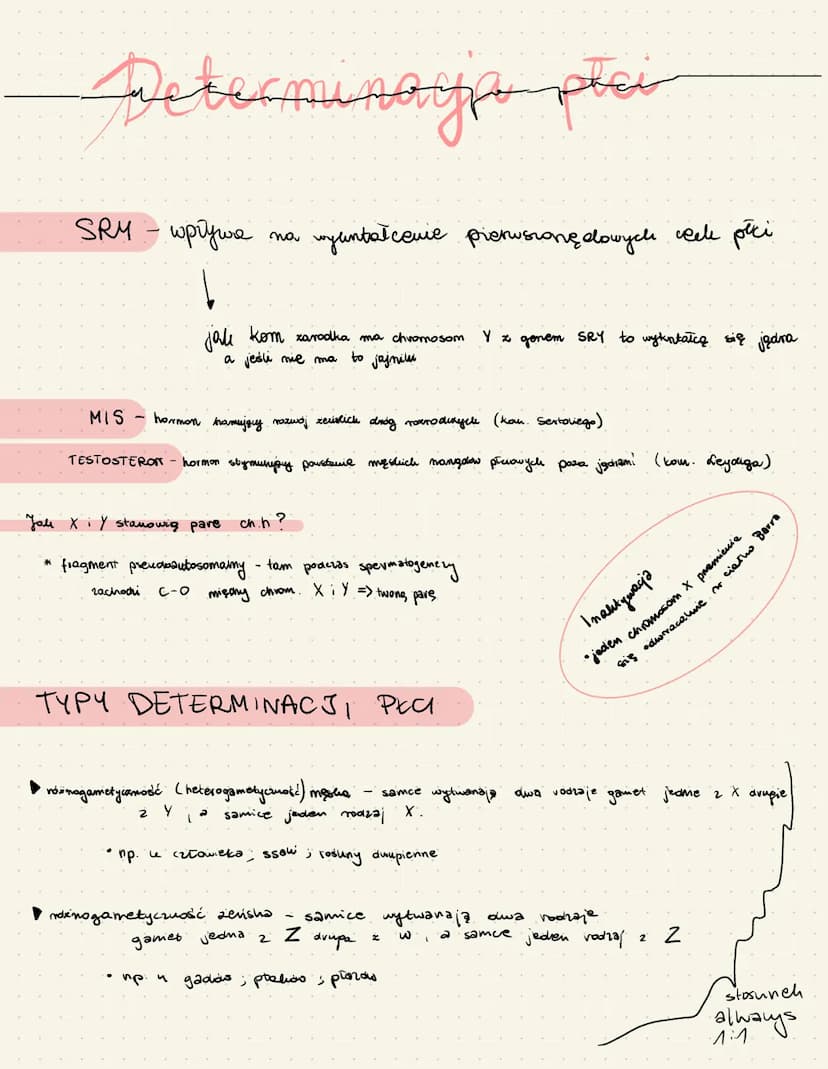 Determinacja płci
SRY - wpływa na wykształcenie pierwszorzędowych cech płci
jak kom zarodka ma chromosom Y z genem SRY to wykształcą się jądra
a jeśli nie ma to jajniki
MIS - hormon hamujący rozwój żeńskich dróg rozrodczych (kom. Sertoliego)
TESTOSTERON - hormon stymulujący powstanie męskich narządów płciowych poza jądrami (kom. Leydiga)
Jak X i Y stanowią parę ch.h?
* fragment pseudoautosomalny - tam podczas spermatogenezy
zachodzi C-O między chrom. X i Y => tworzą parę
Inaktywacja
• jeden chromosom X przemienia
się odwracalnie w ciałko Barra
TYPY DETERMINACJI PŁCI
▶ różnogametyczność (heterogametyczność) męska - samce wytwarzają dwa rodzaje gamet jedne z X drugie
z Y, a samice jeden rodzaj X.
• np. u człowieka; ssaki; rośliny dwupienne
▶ różnogametyczność żeńska - samice wytwarzają dwa rodzaje
gamet jedna z Z druga z W, a samce jeden rodzaj z Z
• np. u gadów; ptaków; płazów
stosunek
always
1:1